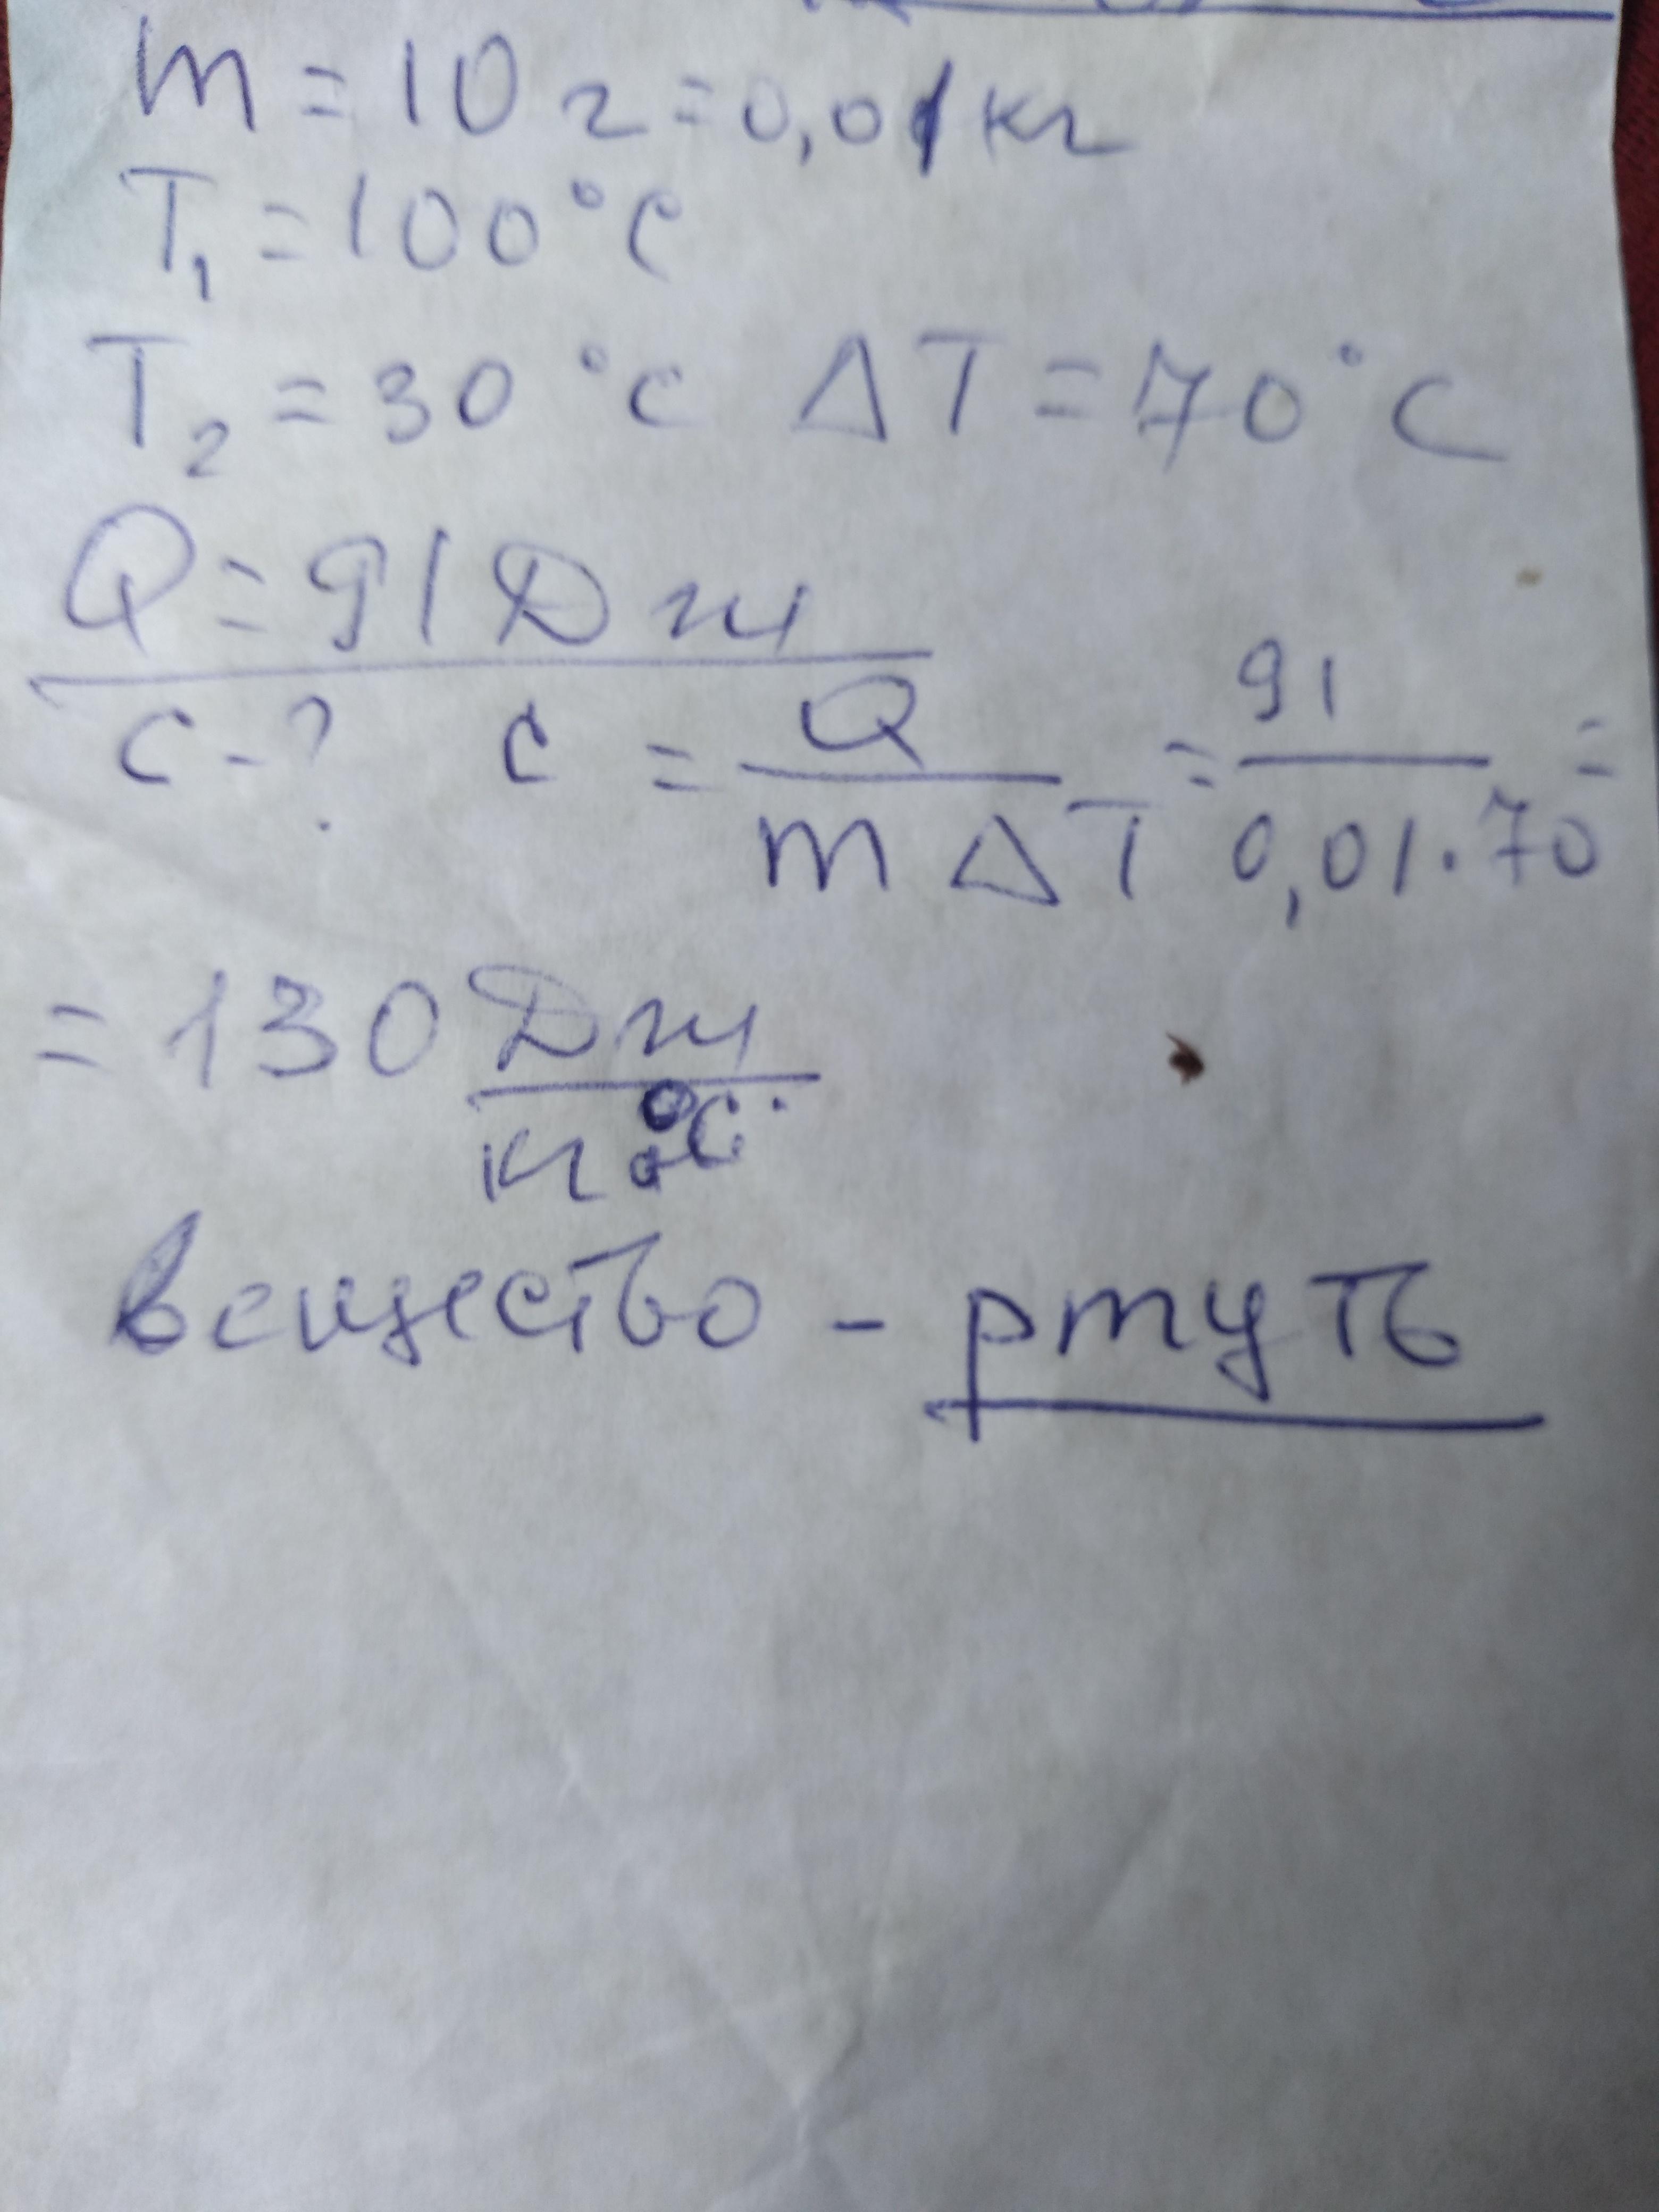 m = 10 г = 0,01 кг
T₁ = 100°C
T₂ = 30 °C ΔT = 70°C
Q = 91 Дж
c - ? c = Q / m ΔT = 91 / 0,01 · 70 =
= 130 Дж / кг °C
вещество - ртуть